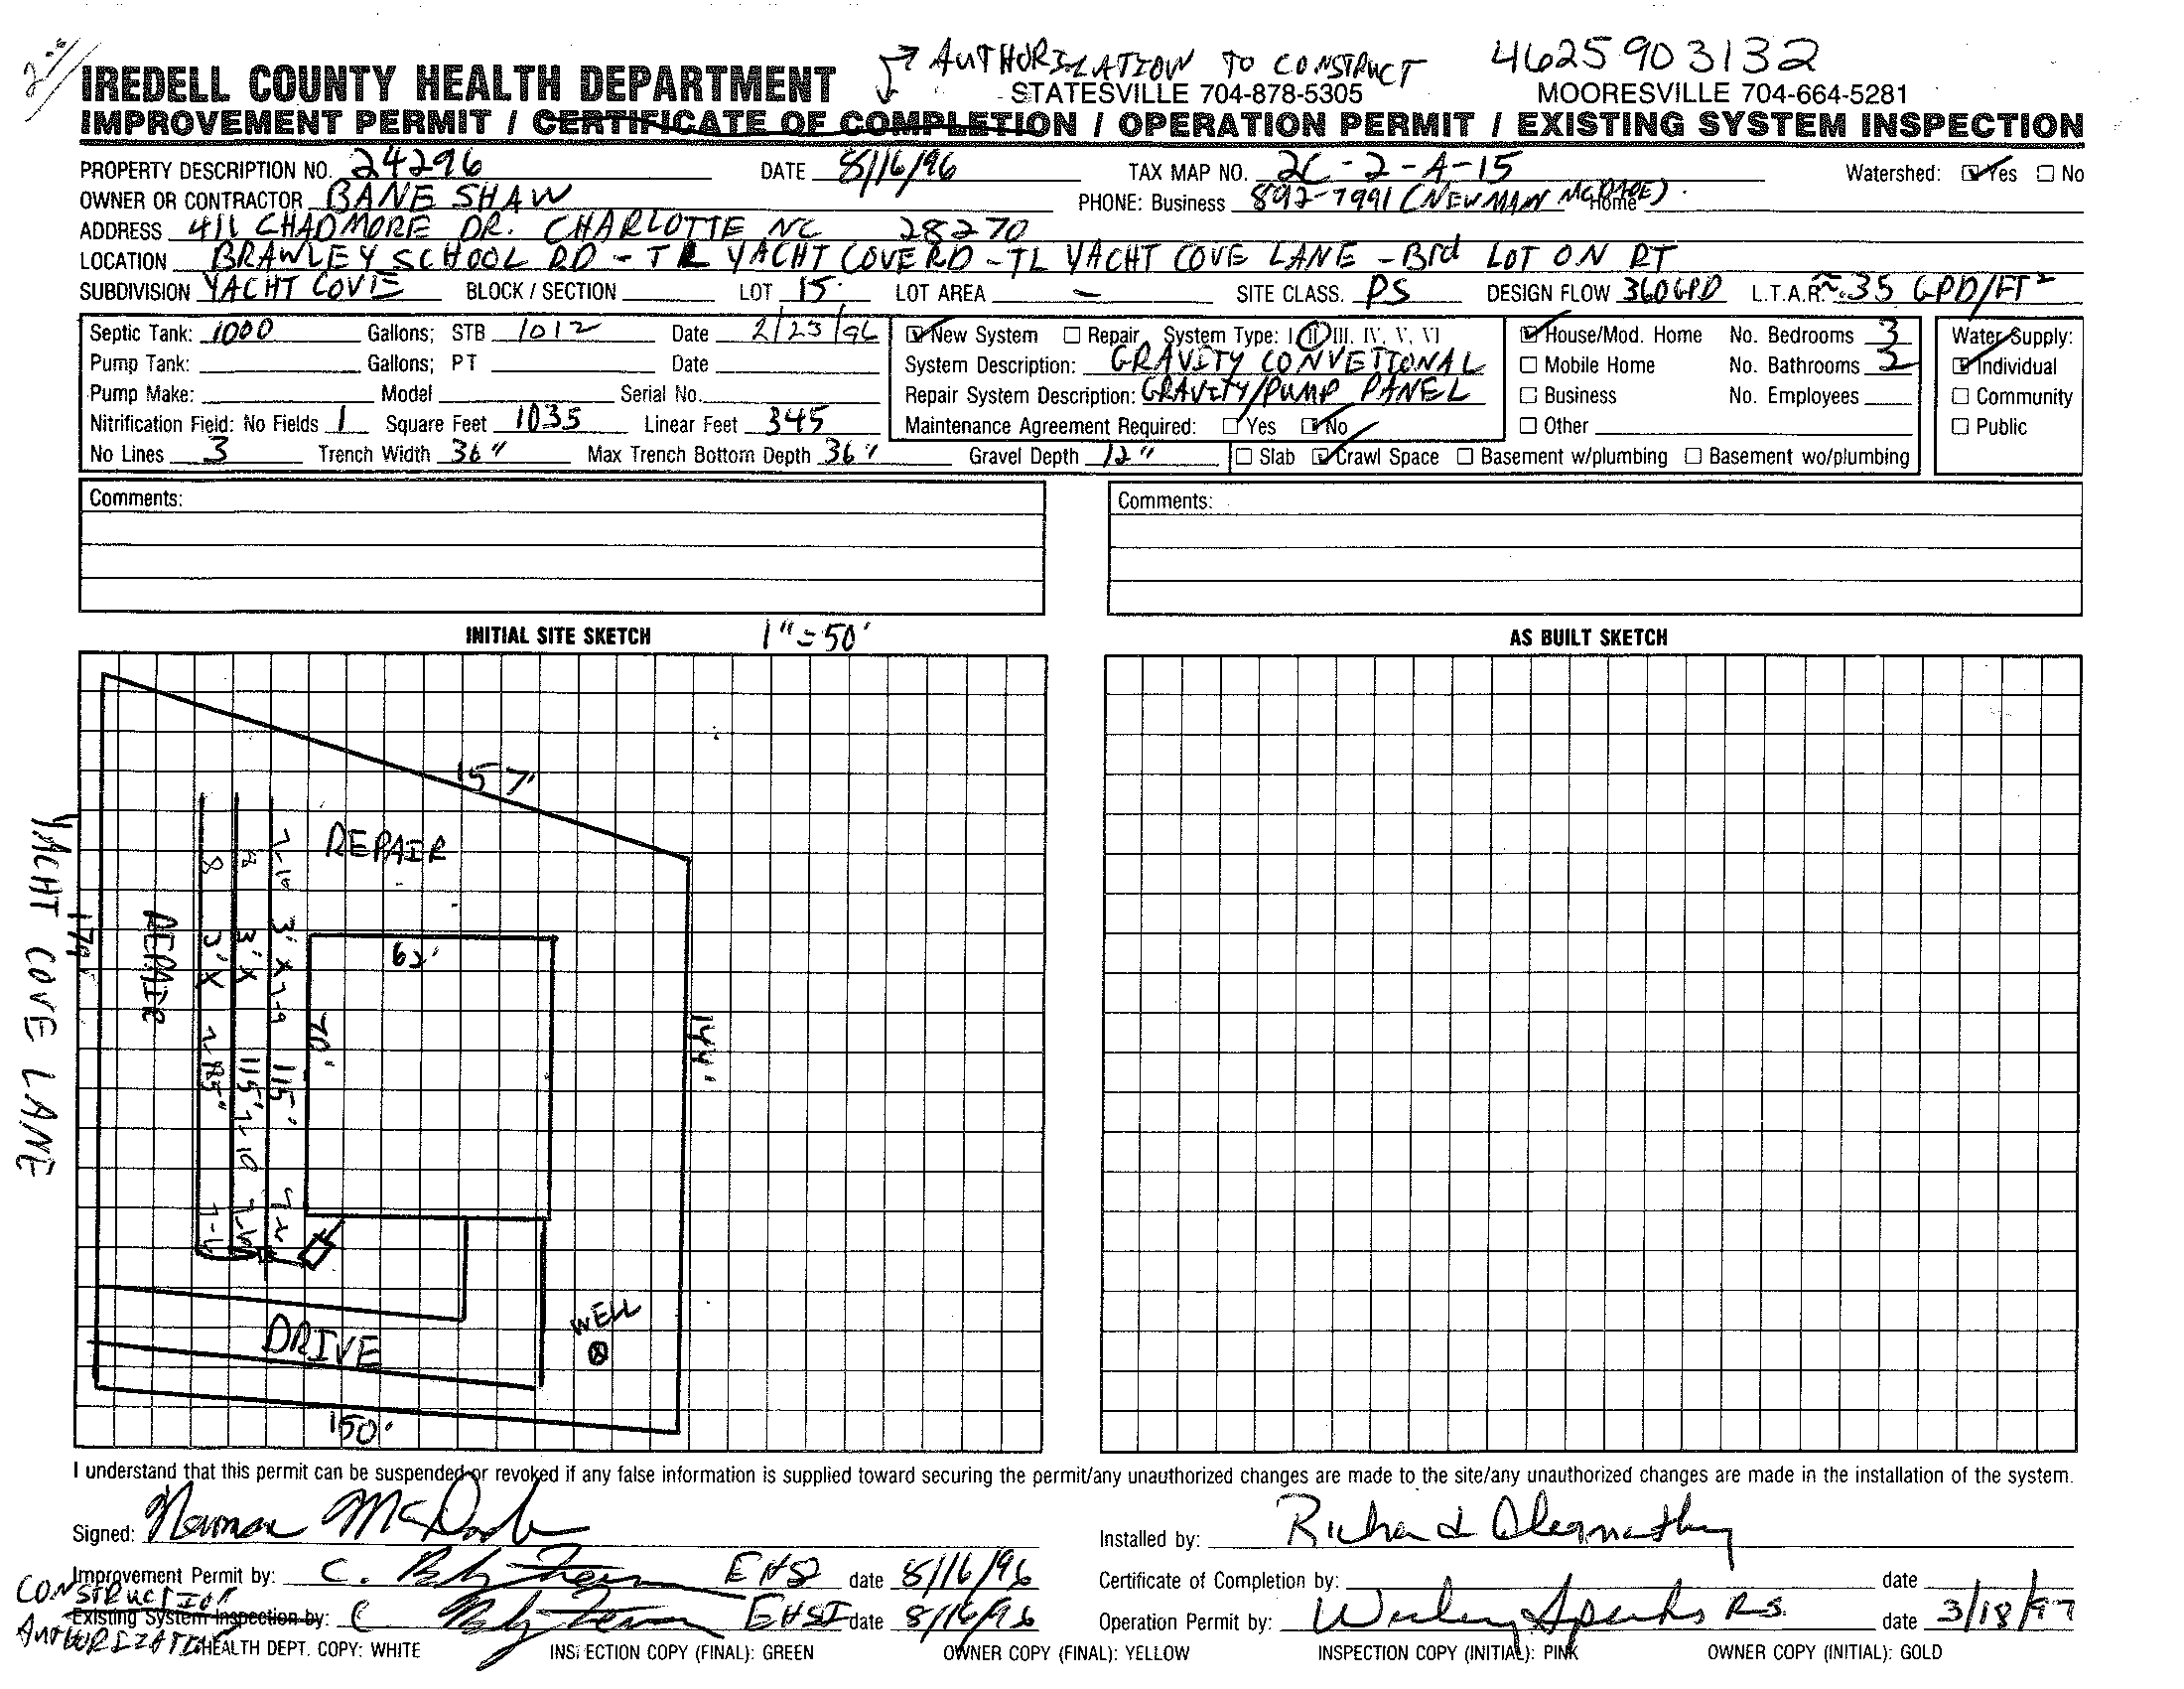 2-6
AUTHORIZATION TO CONSTRUCT 4625903132
IREDELL COUNTY HEALTH DEPARTMENT STATESVILLE 704-878-5305 MOORESVILLE 704-664-5281
IMPROVEMENT PERMIT / CERTIFICATE OF COMPLETION / OPERATION PERMIT / EXISTING SYSTEM INSPECTION
PROPERTY DESCRIPTION NO. 24296 DATE 8/16/96 TAX MAP NO. 2C-2-A-15 Watershed: Yes No
OWNER OR CONTRACTOR BANE SHAW PHONE: Business 892-7991 (NEWMAN Home
ADDRESS 411 CHADMORE DR. CHARLOTTE NC 28270
LOCATION BRAWLEY SCHOOL RD - TL YACHT COVE RD - TL YACHT COVE LANE - 3rd LOT ON RT
SUBDIVISION YACHT COVE BLOCK / SECTION LOT 15 LOT AREA - SITE CLASS. PS DESIGN FLOW 360 GPD L.T.A.R. ~.35 GPD/FT²
Septic Tank: 1000 Gallons; STB 1012 Date 2/23/96 New System Repair System Type: I II III, IV, V, VI House/Mod. Home No. Bedrooms 3 Water Supply:
Pump Tank: Gallons; PT Date System Description: GRAVITY CONVETIONAL Mobile Home No. Bathrooms 2 Individual
Pump Make: Model Serial No. Repair System Description: GRAVITY/PUMP PANEL Business No. Employees Community
Nitrification Field: No Fields 1 Square Feet 1035 Linear Feet 345 Maintenance Agreement Required: Yes No Other Public
No Lines 3 Trench Width 36" Max Trench Bottom Depth 36" Gravel Depth 12" Slab Crawl Space Basement w/plumbing Basement wo/plumbing
Comments: Comments:
INITIAL SITE SKETCH 1"=50' AS BUILT SKETCH
157'
REPAIR
YACHT COVE LANE
179'
REPAIR
62'
70'
144'
3' X 115'
3' X 115'
WELL
DRIVE
150'
I understand that this permit can be suspended or revoked if any false information is supplied toward securing the permit/any unauthorized changes are made to the site/any unauthorized changes are made in the installation of the system.
Signed: Installed by: Richard Abernathy
Improvement Permit by: C. EHS date 8/16/96 Certificate of Completion by: date
CONSTRUCTION
Existing System Inspection by: C EHSI date 8/16/96 Operation Permit by: Wesley Sparks R.S. date 3/18/97
AUTHORIZATION
HEALTH DEPT. COPY: WHITE INSPECTION COPY (FINAL): GREEN OWNER COPY (FINAL): YELLOW INSPECTION COPY (INITIAL): PINK OWNER COPY (INITIAL): GOLD